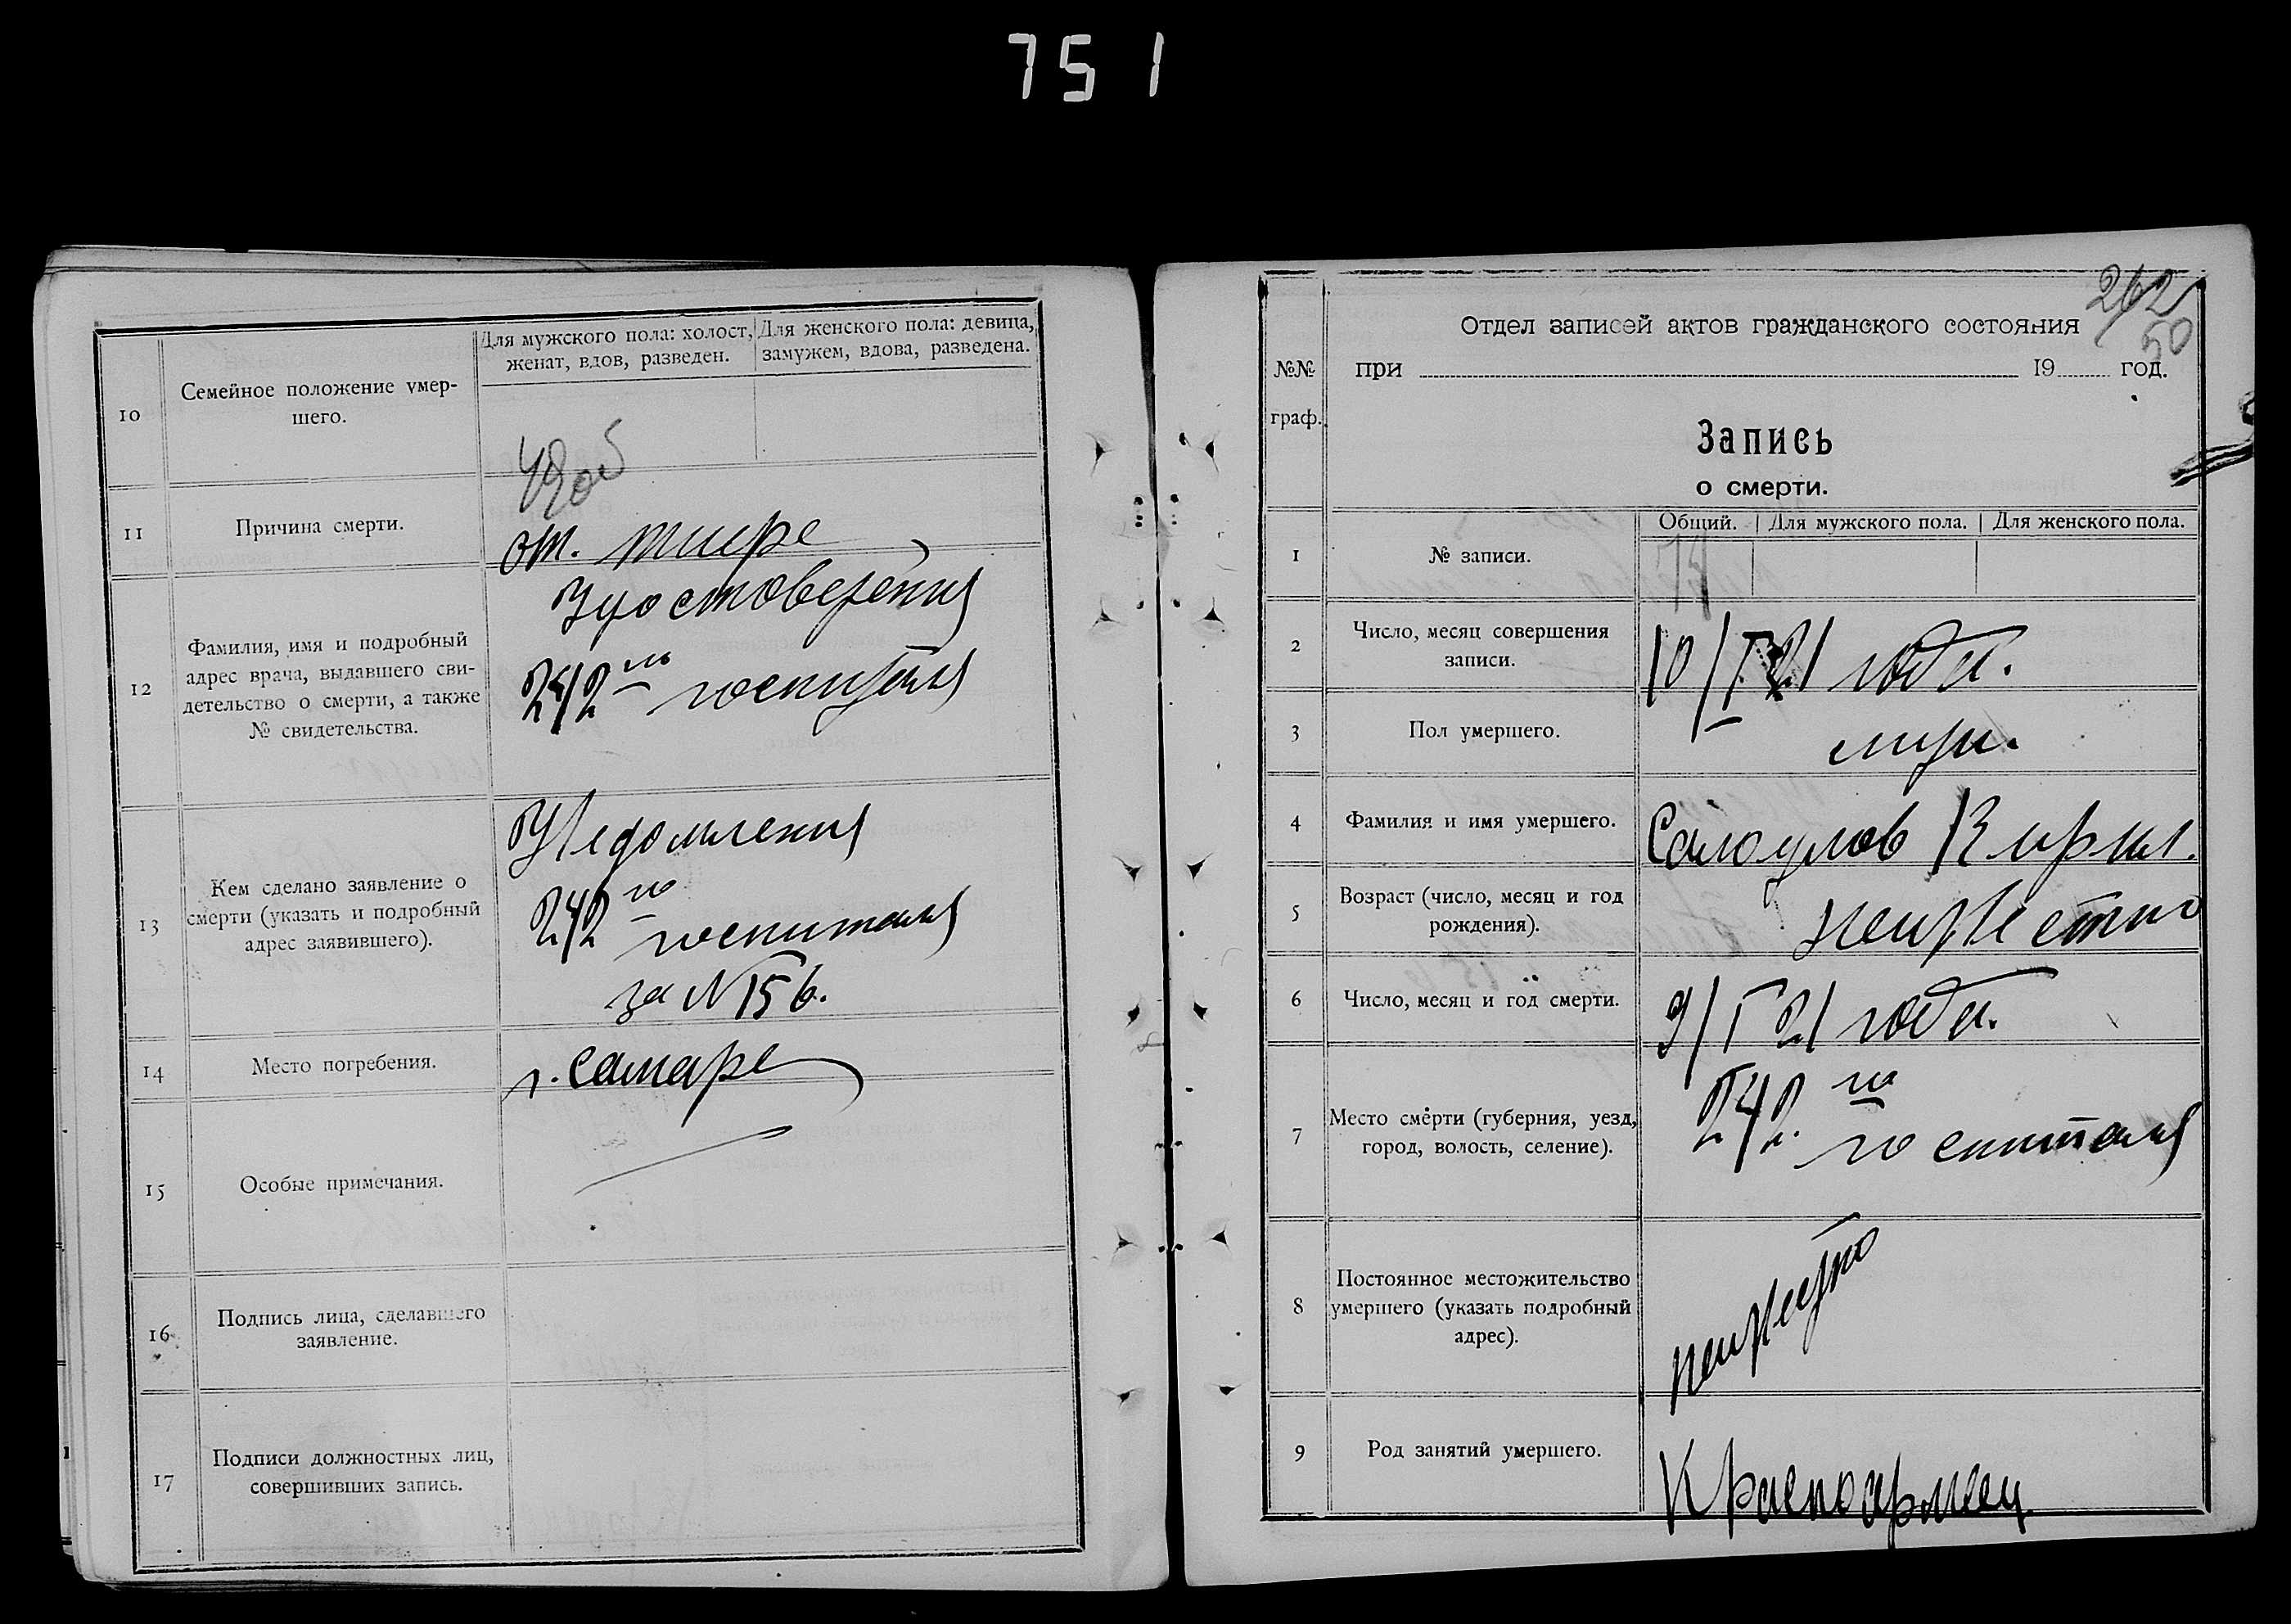 751
10
Семейное положение умер-
шего.
Для мужского пола: холост,
женат, вдов, разведен.
Для женского пола: девица,
замужем, вдова, разведена.
11
Причина смерти.
от. тифе
12
Фамилия, имя и подробный
адрес врача, выдавшего сви-
детельство о смерти, а также
№ свидетельства.
Удостоверения
242 го госпиталя
13
Кем сделано заявление о
смерти (указать и подробный
адрес заявившего).
Уведомления
242 го
госпиталя
за N 156.
14
Место погребения.
г. Самаре
15
Особые примечания.
16
Подпись лица, сделавшего
заявление.
17
Подписи должностных лиц,
совершивших запись.
262
50
№№
граф.
Отдел записей актов гражданского состояния
при 19 год.
Запись
о смерти.
Общий. Для мужского пола. Для женского пола.
1
№ записи.
2
Число, месяц совершения
записи.
10/I 21 года.
3
Пол умершего.
муж.
4
Фамилия и имя умершего.
5
Возраст (число, месяц и год
рождения).
неизвестно
6
Число, месяц и год смерти.
9/I 21 года.
7
Место смерти (губерния, уезд,
город, волость, селение).
242 го
госпиталя
8
Постоянное местожительство
умершего (указать подробный
адрес).
неизвестно
9
Род занятий умершего.
Красноармеец